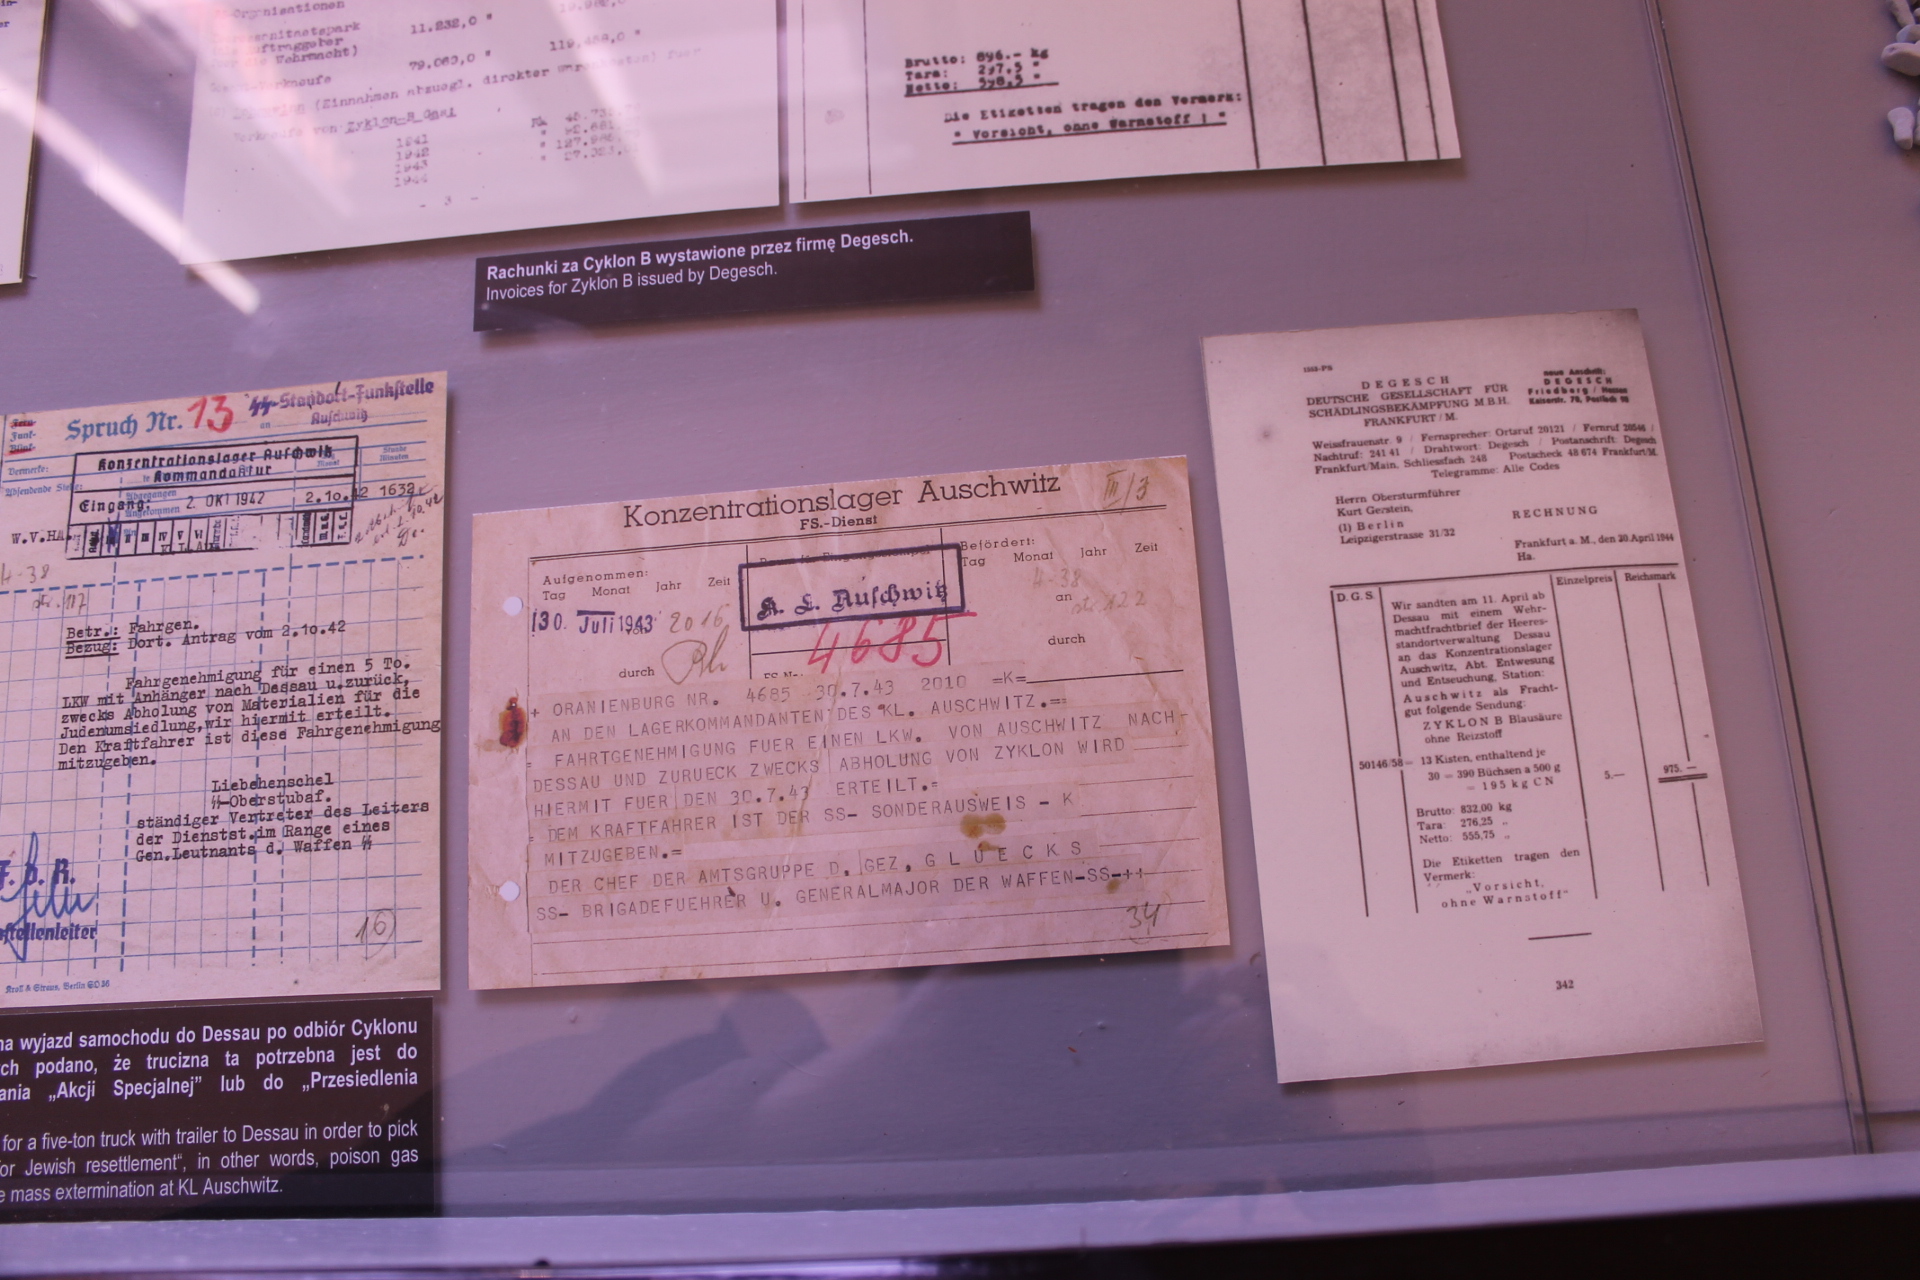 Organisationen
11.232,0 "
Wehrmacht)
79.069,0 "
119.489,0 "
(Einnahmen abzuegl. direkter
von Zyklon-B Gas:
1941
1942
1943
- 3 -
Brutto: 896.- kg
Tara: 297,5 "
Netto: 598,5 "
Die Etiketten tragen den Vermerk:
" Vorsicht, ohne Warnstoff ! "
Rachunki za Cyklon B wystawione przez firmę Degesch.
Invoices for Zyklon B issued by Degesch.
Spruch Nr. 13
an
SS-Standort-Funkstelle
Auschwitz
Funk-
Blink-
Vermerke:
Absendende Stelle
Konzentrationslager Auschwitz
Kommandantur
Eingang: 2 OKT 1942
2.10.42 1632
W.V.HA.
4-38
str. 117
Betr.: Fahrgen.
Bezug: Dort. Antrag vom 2.10.42
Fahrgenehmigung für einen 5 To.
LKW mit Anhänger nach Dessau u.zurück,
zwecks Abholung von Materialien für die
Judenumsiedlung,wir hiermit erteilt.
Den Kraftfahrer ist diese Fahrgenehmigung
mitzugeben.
Liebehenschel
SS-Oberstubaf.
ständiger Vertreter des Leiters
der Dienstst.im Range eines
Gen.Leutnants d. Waffen SS
F. d. R.
stellenleiter
16
Kroll & Straus, Berlin SO 36
na wyjazd samochodu do Dessau po odbiór Cyklonu
ch podano, że trucizna ta potrzebna jest do
ania „Akcji Specjalnej” lub do „Przesiedlenia
for a five-ton truck with trailer to Dessau in order to pick
for Jewish resettlement“, in other words, poison gas
e mass extermination at KL Auschwitz.
Konzentrationslager Auschwitz
III/3
FS.-Dienst
Aufgenommen:
Tag Monat Jahr Zeit
Befördert:
Tag Monat Jahr Zeit
K. L. Auschwitz
30. Juli 1943 2016
4-38
an
str. 122
4685
durch
durch
+ ORANIENBURG NR. 4685 30.7.43 2010 =K=
AN DEN LAGERKOMMANDANTEN DES KL. AUSCHWITZ.==
= FAHRTGENEHMIGUNG FUER EINEN LKW. VON AUSCHWITZ NACH-
DESSAU UND ZURUECK ZWECKS ABHOLUNG VON ZYKLON WIRD
HIERMIT FUER DEN 30.7.43 ERTEILT.=
= DEM KRAFTFAHRER IST DER SS- SONDERAUSWEIS - K
MITZUGEBEN.=
DER CHEF DER AMTSGRUPPE D. GEZ, G L U E C K S
SS- BRIGADEFUEHRER U. GENERALMAJOR DER WAFFEN-SS-++
34
1553-PS
DEGESCH
DEUTSCHE GESELLSCHAFT FÜR
SCHÄDLINGSBEKÄMPFUNG M.B.H.
FRANKFURT / M.
neue Anschrift:
DEGESCH
Friedberg / Hessen
Kaiserstr. 70, Postfach 98
Weissfrauenstr. 9 / Fernsprecher: Ortsruf 20121 / Fernruf 20546 /
Nachtruf: 241 41 / Drahtwort: Degesch / Postanschrift: Degesch
Frankfurt/Main, Schliessfach 248 Postscheck 48 674 Frankfurt/M.
Telegramme: Alle Codes
Herrn Obersturmführer
Kurt Gerstein,
(1) Berlin
Leipzigerstrasse 31/32
RECHNUNG
Frankfurt a. M., den 20.April 1944
Ha.
D.G.S.
Einzelpreis
Reichsmark
Wir sandten am 11. April ab
Dessau mit einem Wehr-
machtfrachtbrief der Heeres-
standortverwaltung Dessau
an das Konzentrationslager
Auschwitz, Abt. Entwesung
und Entseuchung, Station:
Auschwitz als Fracht-
gut folgende Sendung:
ZYKLON B Blausäure
ohne Reizstoff
50146/58 = 13 Kisten, enthaltend je
30 = 390 Büchsen a 500 g
= 195 kg CN
5.—
975. —
Brutto: 832,00 kg
Tara: 276,25 „
Netto: 555,75 „
Die Etiketten tragen den
Vermerk:
„Vorsicht,
ohne Warnstoff“
342